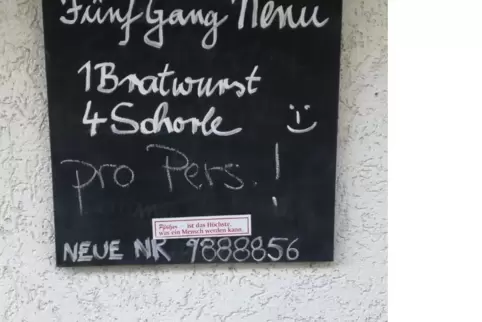 Fünf Gang Menü
1 Bratwurst
4 Schorle
pro Pers. !
Pfälzer ist das Höchste,
was ein Mensch werden kann.
NEUE NR 9888856